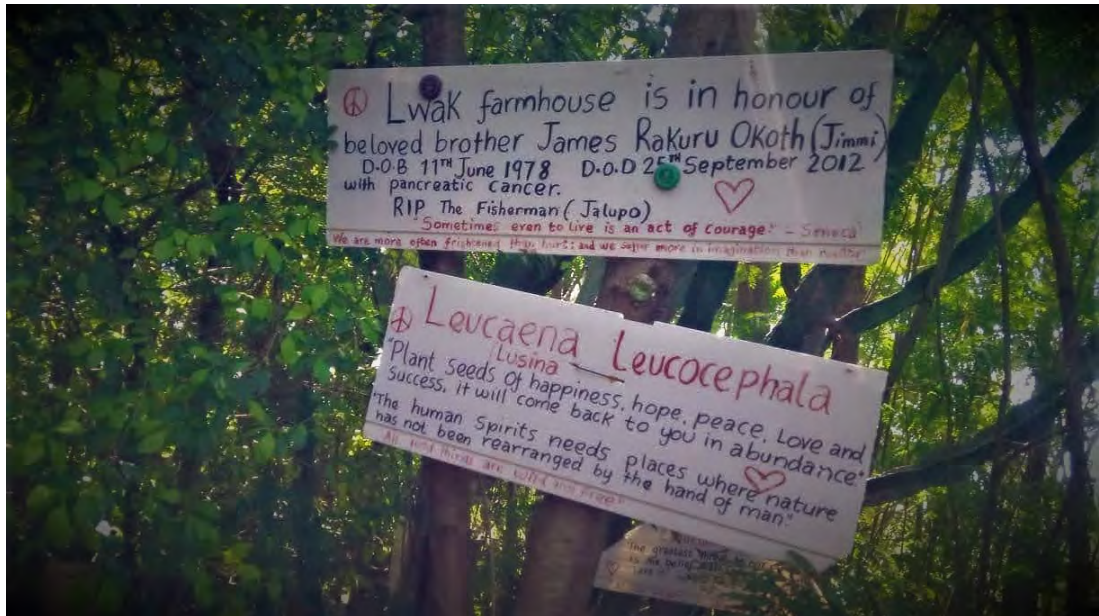 Lwak farmhouse is in honour of
beloved brother James Rakuru Okoth (Jimmi)
D.O.B 11TH June 1978 D.O.D 25TH September 2012
with pancreatic cancer.
RIP The Fisherman (Jalupo)
"Sometimes even to live is an act of courage." - Seneca
We are more often frightened than hurt; and we suffer more in imagination than reality"
Leucaena Leucocephala
Lusina
"Plant seeds of happiness, hope, peace, Love and
Success, it will come back to you in abundance."
"The human Spirits needs places where nature
has not been rearranged by the hand of man"
All good things are wild and free"
The greatest